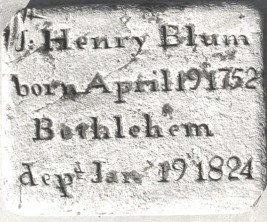 J: Henry Blum
born April 19 1752
Bethlehem
dept Jan 19 1824